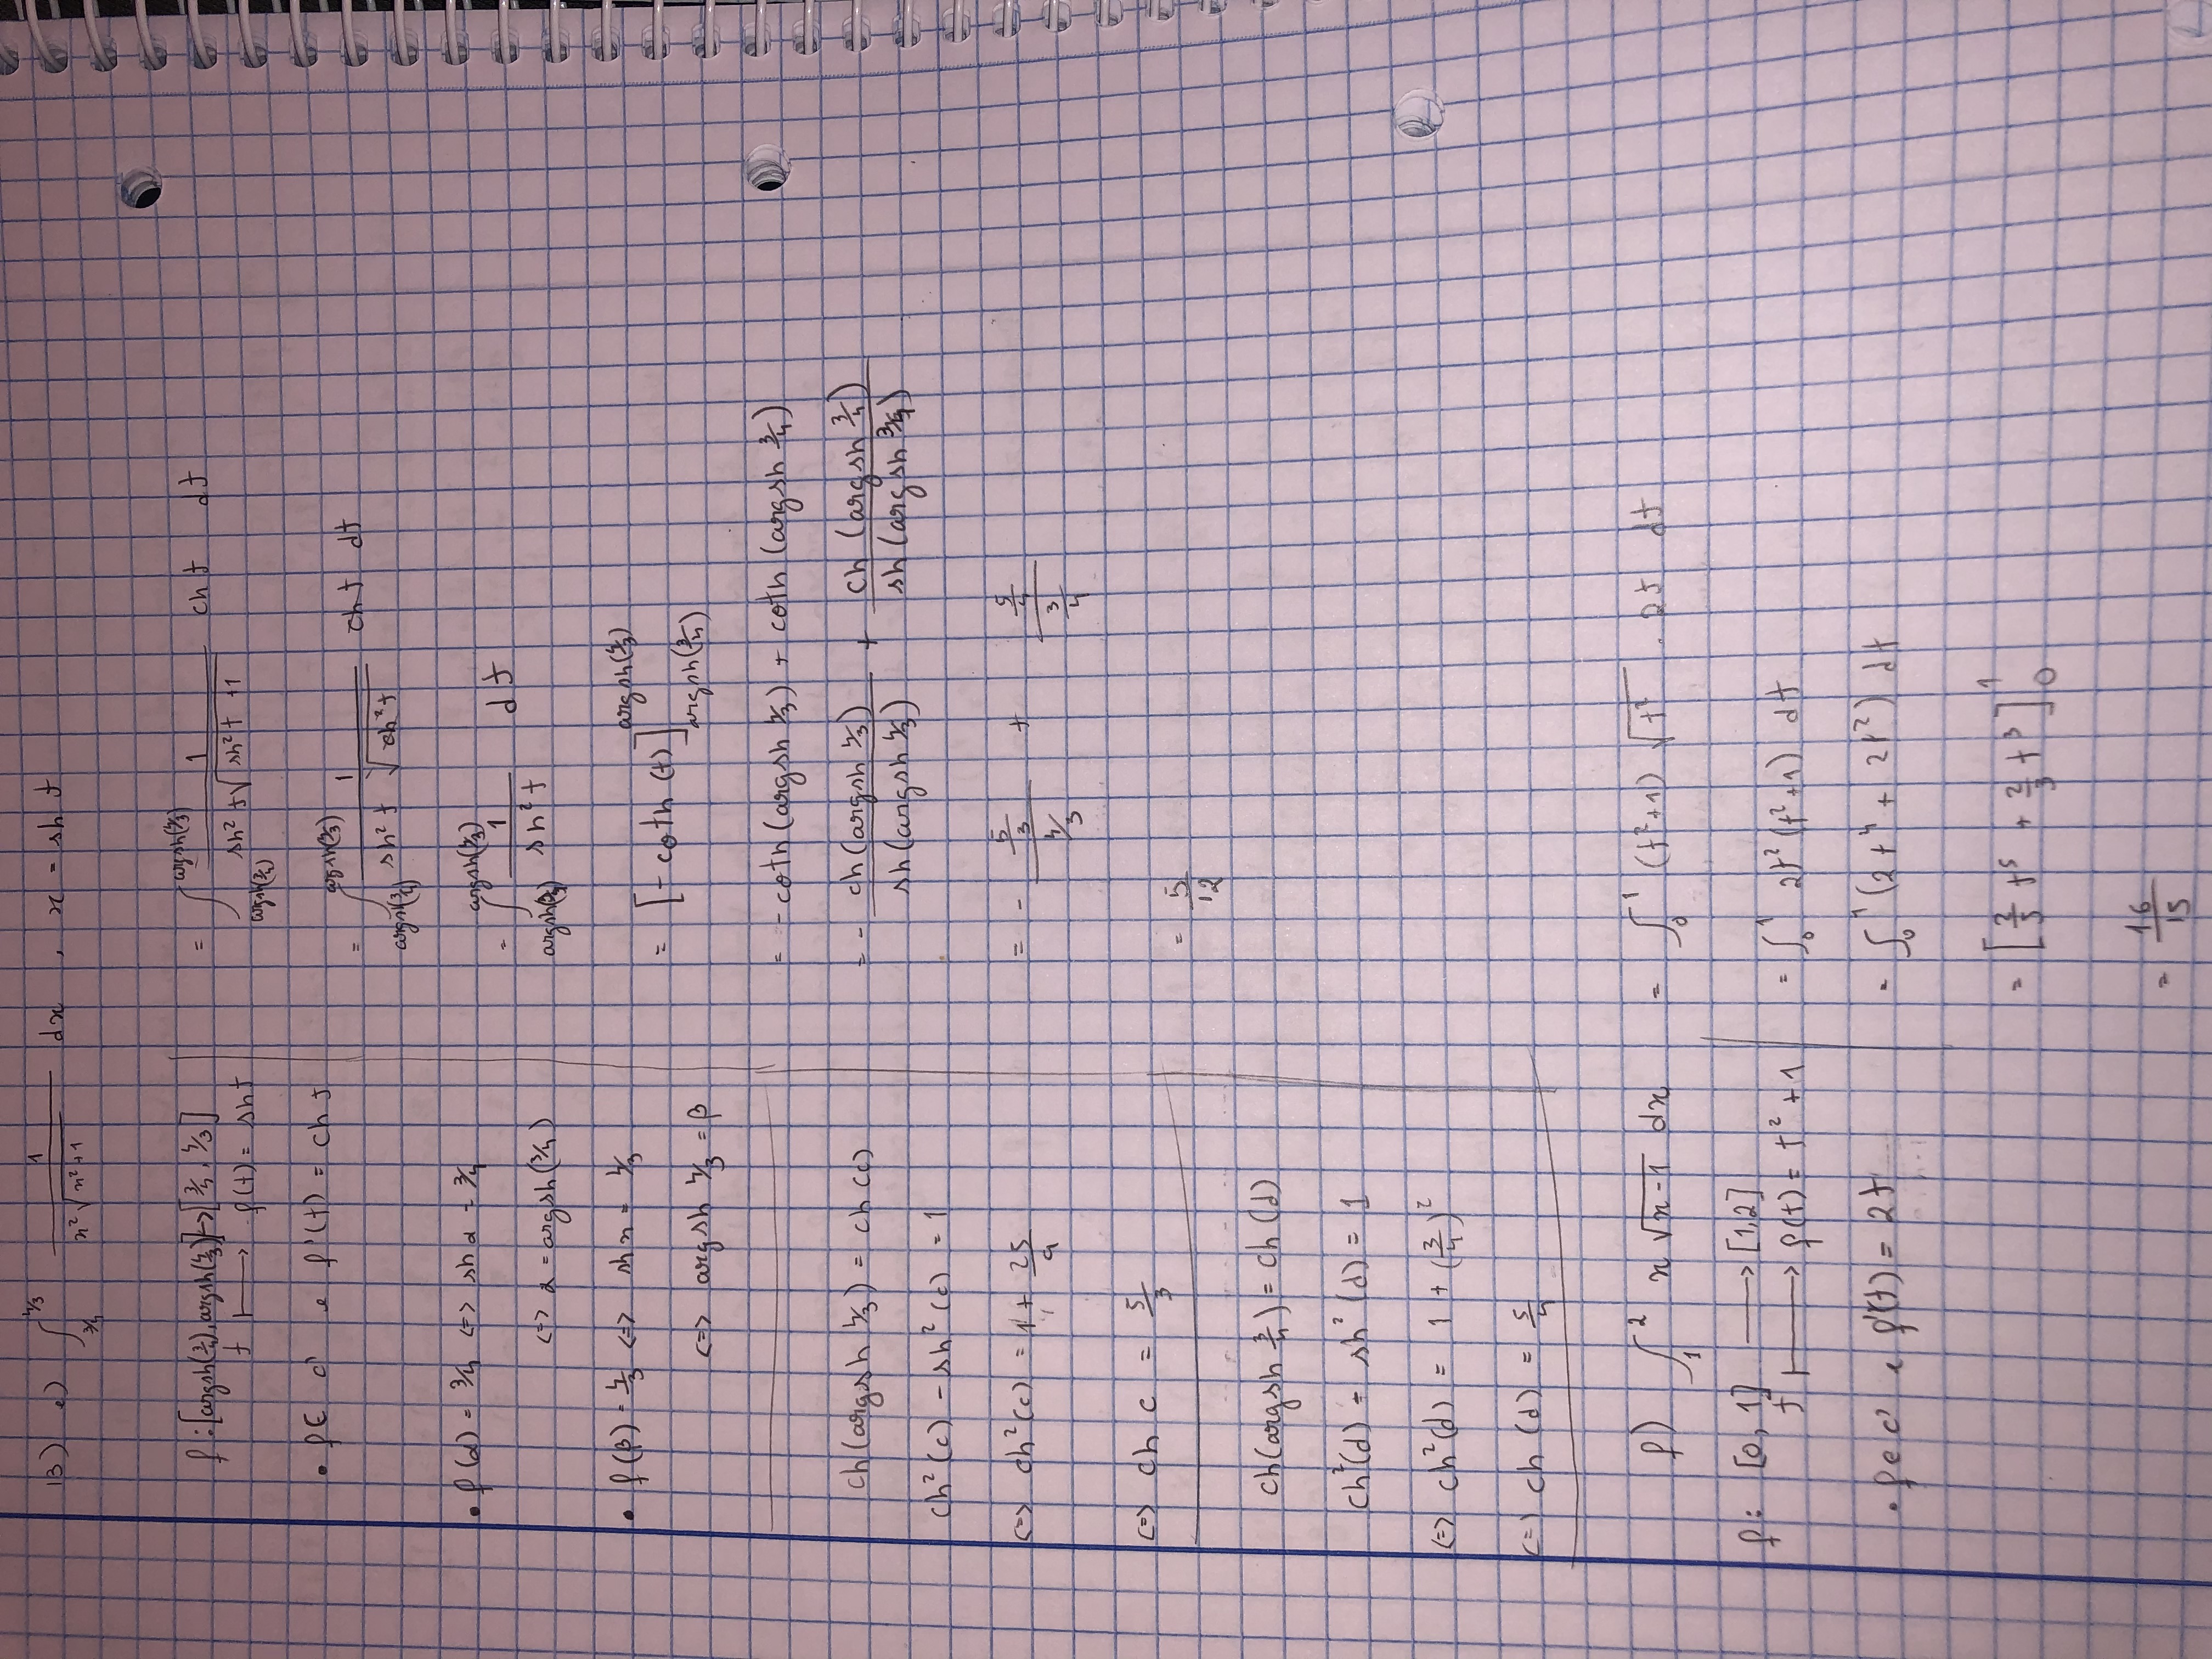 13) e) ∫_{3/4}^{4/3} 1/(x²√(x²+1)) dx , x = sh t
f: [argsh(3/4), argsh(4/3)] → [3/4, 4/3]
t ↦ f(t) = sh t
• f ∈ C¹ e f'(t) = ch t
• f(α) = 3/4 <=> sh α = 3/4
<=> α = argsh(3/4)
• f(β) = 4/3 <=> sh x = 4/3
<=> argsh 4/3 = β
ch(argsh 4/3) = ch(c)
ch²(c) - sh²(c) = 1
<=> ch²(c) = 1 + 25/9
<=> ch c = 5/3
ch(argsh 3/4) = ch(d)
ch²(d) - sh²(d) = 1
<=> ch²(d) = 1 + (3/4)²
<=> ch(d) = 5/4
= ∫_{argsh(3/4)}^{argsh(4/3)} 1/(sh² t √(sh² t + 1)) ch t dt
= ∫_{argsh(3/4)}^{argsh(4/3)} 1/(sh² t √(ch² t)) ch t dt
= ∫_{argsh(3/4)}^{argsh(4/3)} 1/(sh² t) dt
= [-coth(t)]_{argsh(3/4)}^{argsh(4/3)}
= -coth(argsh 4/3) + coth(argsh 3/4)
= - ch(argsh 4/3)/sh(argsh 4/3) + ch(argsh 3/4)/sh(argsh 3/4)
= - (5/3)/(4/3) + (5/4)/(3/4)
= 5/12
f) ∫_1^2 x√(x-1) dx = ∫_0^1 (t²+1) √(t²) . 2t dt
f: [0, 1] → [1,2]
t ↦ f(t) = t² + 1
• f ∈ C¹ e f'(t) = 2t
= ∫_0^1 2t²(t²+1) dt
= ∫_0^1 (2t⁴ + 2t²) dt
= [2/5 t⁵ + 2/3 t³]_0^1
= 16/15